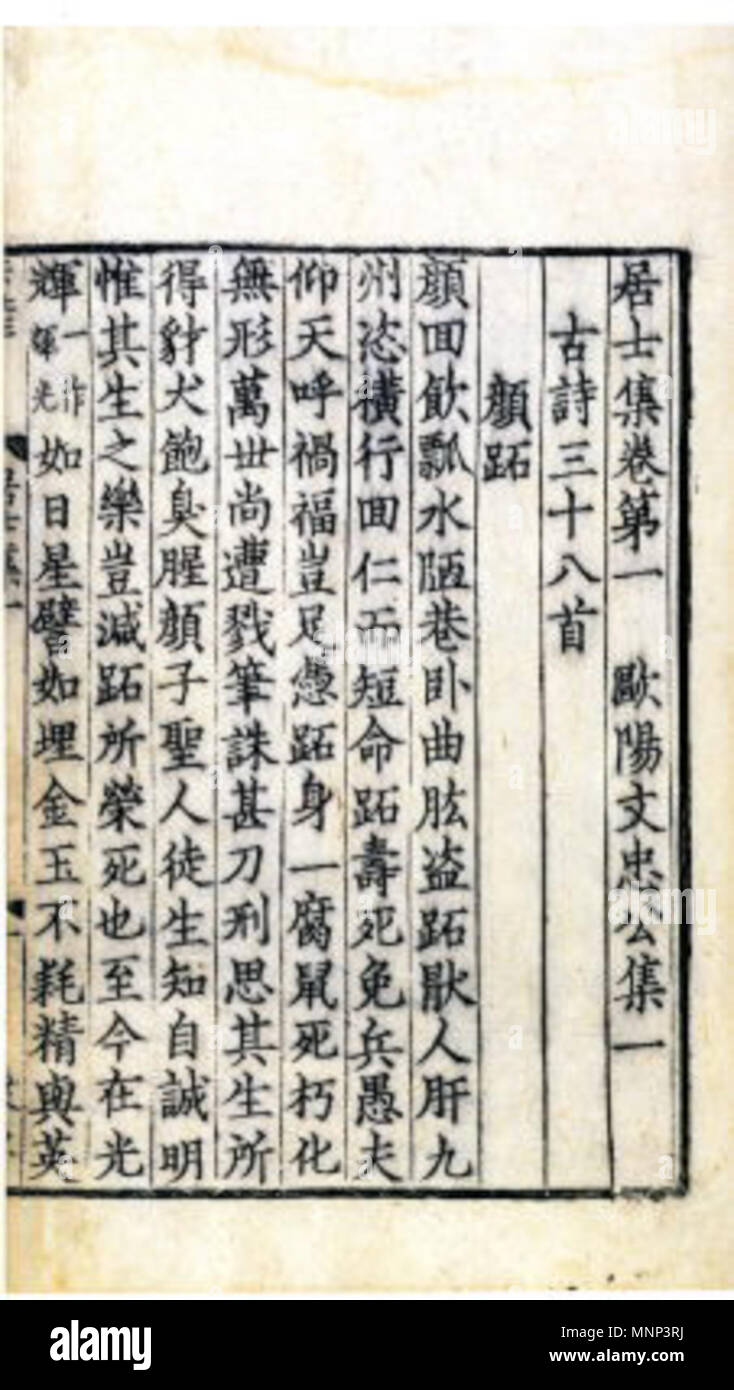 居士集卷第一　歐陽文忠公集一
古詩三十八首
顏跖
顏回飲瓢水陋巷卧曲肱盗跖猒人肝九
州恣橫行回仁而短命跖壽死免兵愚夫
仰天呼禍福豈足憑跖身一腐鼠死朽化
無形萬世尚遭戮筆誅甚刀刑思其生所
得豺犬飽臭腥顏子聖人徒生知自誠明
惟其生之樂豈減跖所榮死也至今在光
輝一作輝光如日星譬如埋金玉不耗精與英
居士集一
a alamy
alamy
Image ID: MNP3RJ
www.alamy.com